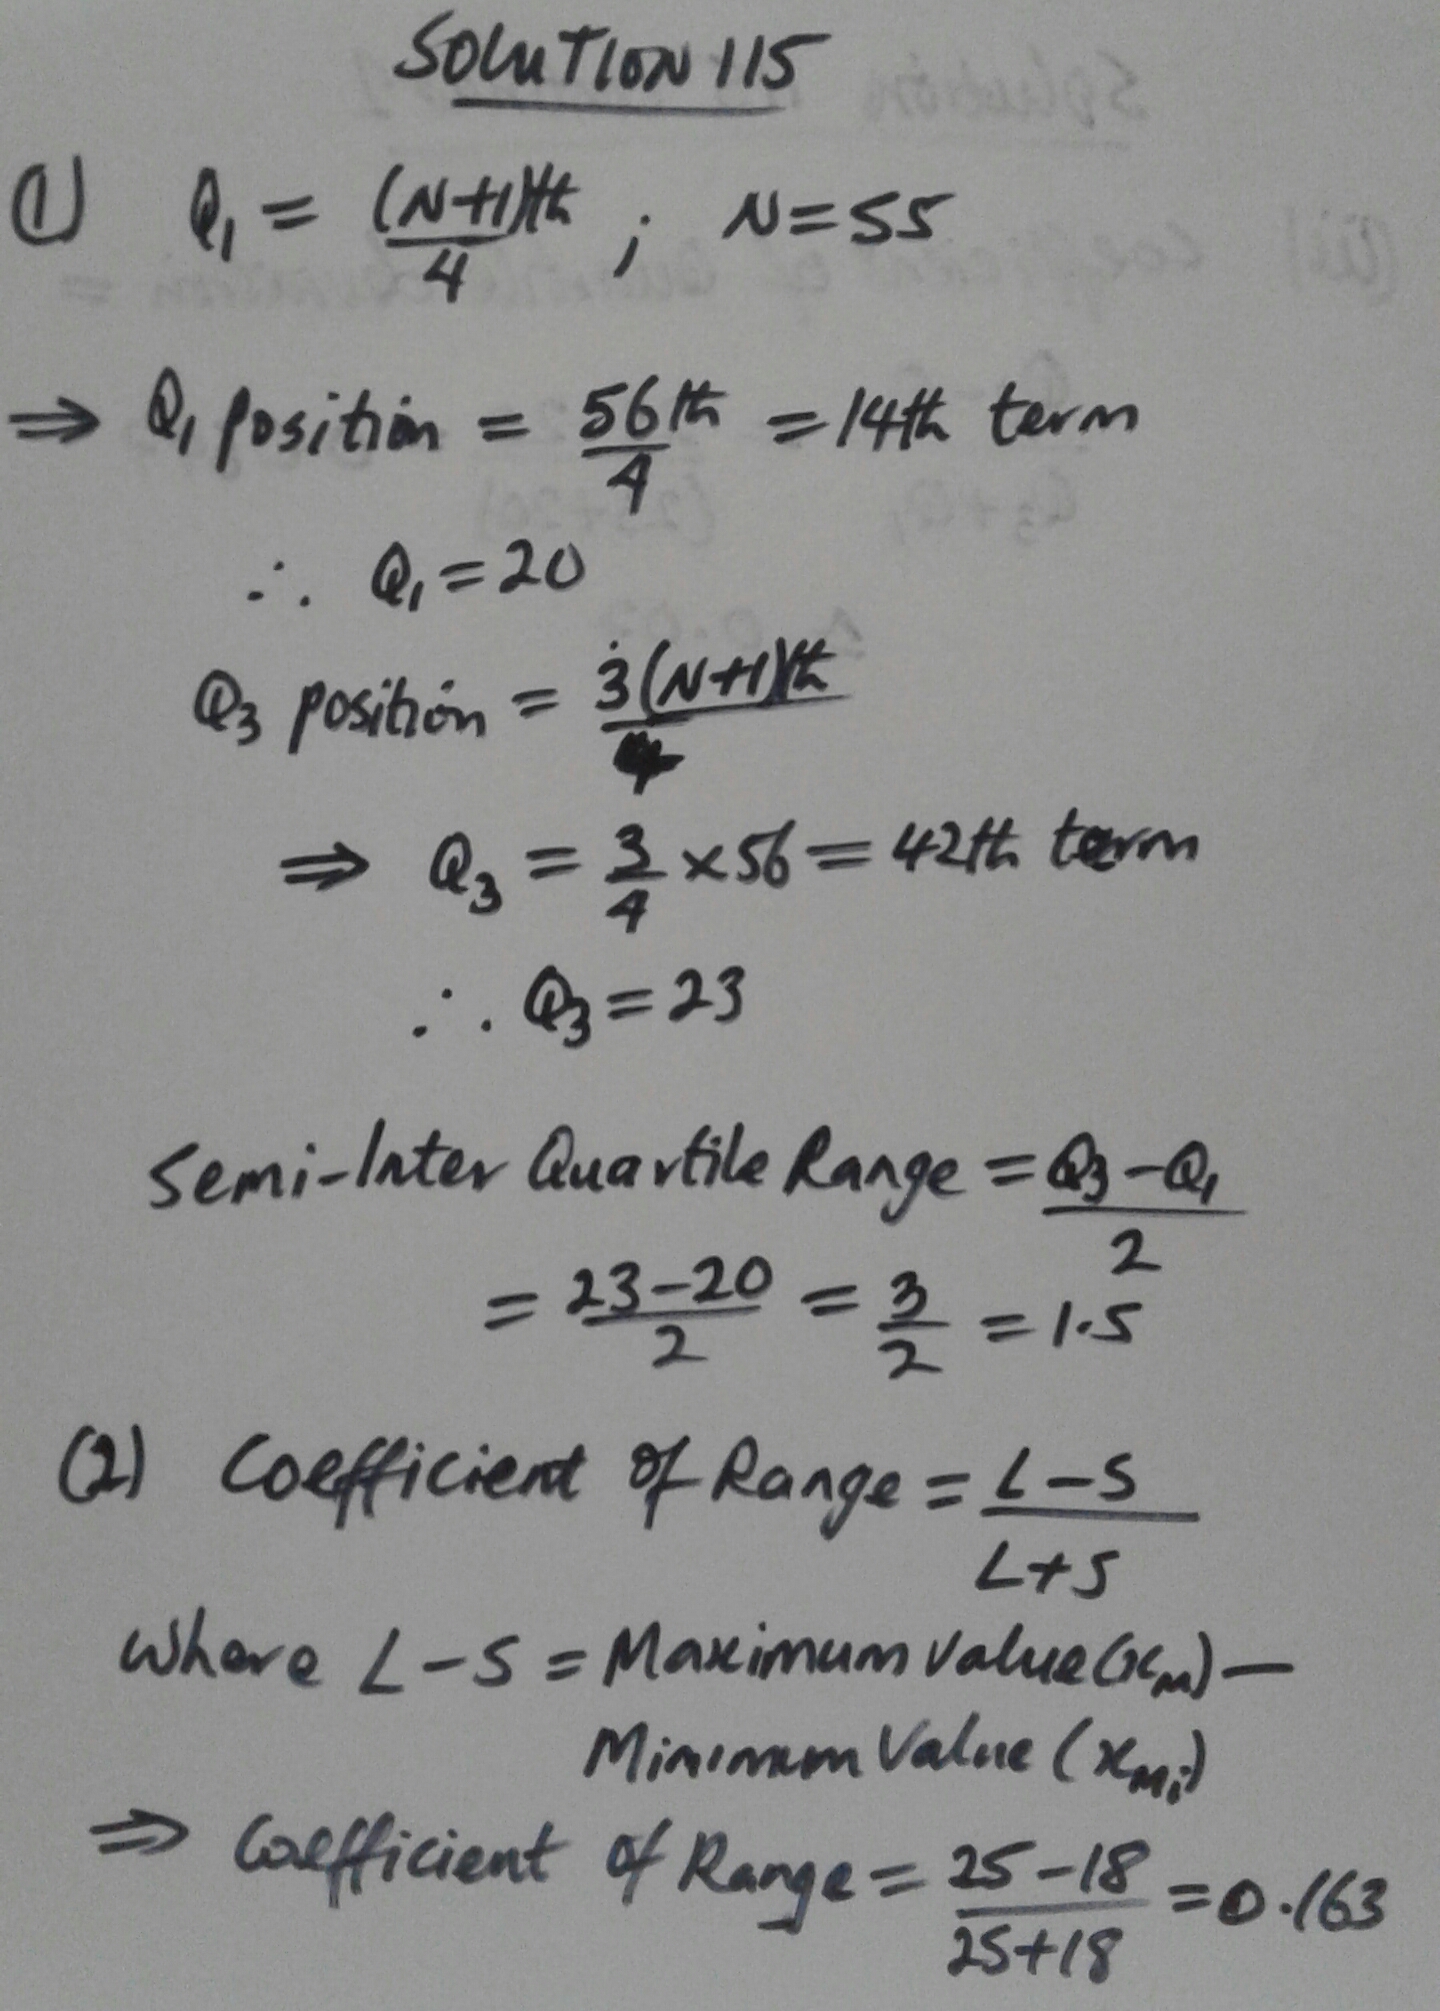 SOLUTION 115
(1) Q₁ = (N+1)th/4 ; N=55
⇒ Q₁ position = 56th/4 = 14th term
∴ Q₁ = 20
Q₃ position = 3(N+1)th/4
⇒ Q₃ = 3/4 × 56 = 42th term
∴ Q₃ = 23
Semi-Inter Quartile Range = Q₃-Q₁/2
= 23-20/2 = 3/2 = 1.5
(2) Coefficient of Range = L-S/L+S
Where L-S = Maximum value (xₘ) –
Minimum Value (xₘᵢ)
⇒ Coefficient of Range = 25-18/25+18 = 0.163